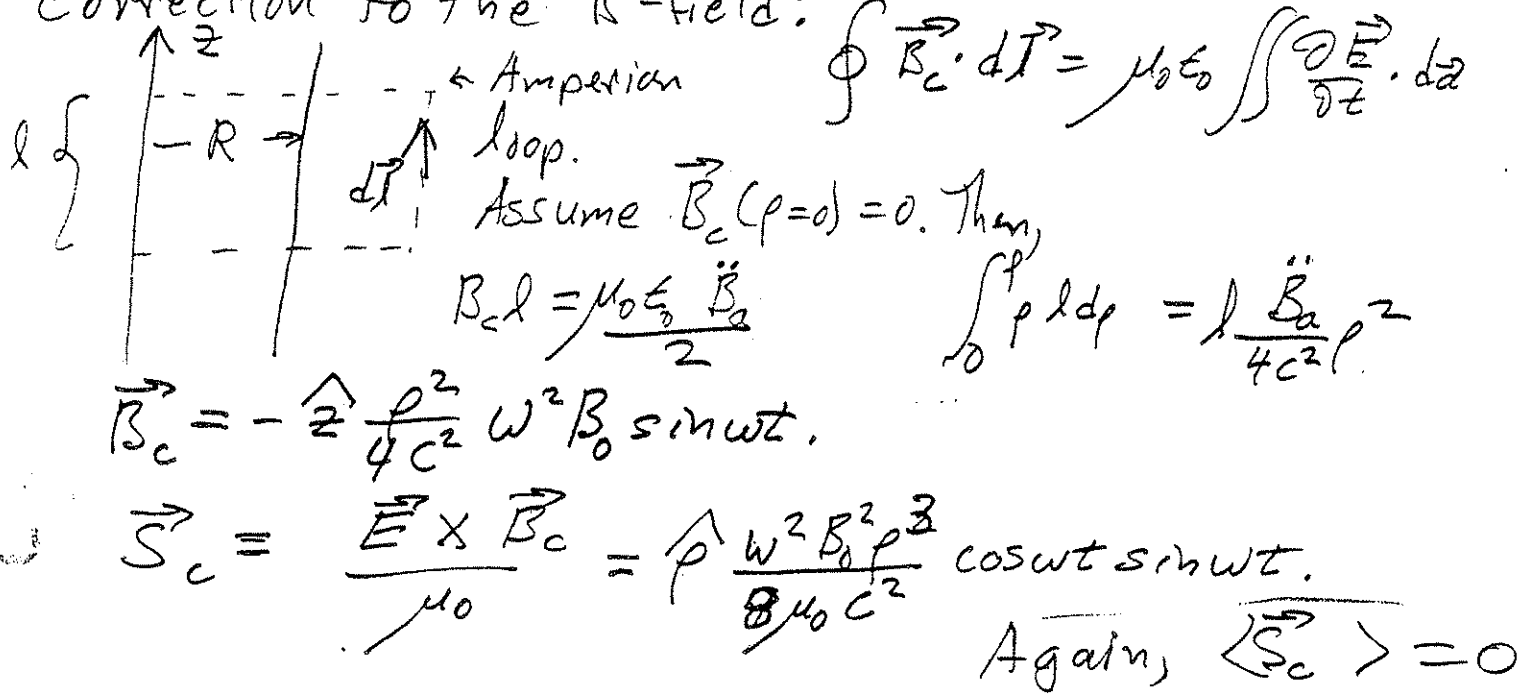 correction to the B-field.
z
← Amperian loop.
l { — R → dl⃗
∮ B⃗_c · dl⃗ = μ₀ε₀ ∬ ∂E⃗/∂t · da⃗
Assume B⃗_c (ρ=0) = 0. Then,
B_c l = μ₀ε₀ B̈_a / 2 ∫₀^ρ ρ l dρ = l B̈_a / 4c² ρ²
B⃗_c = - ẑ ρ² / 4c² ω² B₀ sin ωt.
S⃗_c = E⃗ × B⃗_c / μ₀ = ρ̂ ω² B₀² ρ³ / 8 μ₀ c² cos ωt sin ωt.
Again, <S⃗_c> = 0